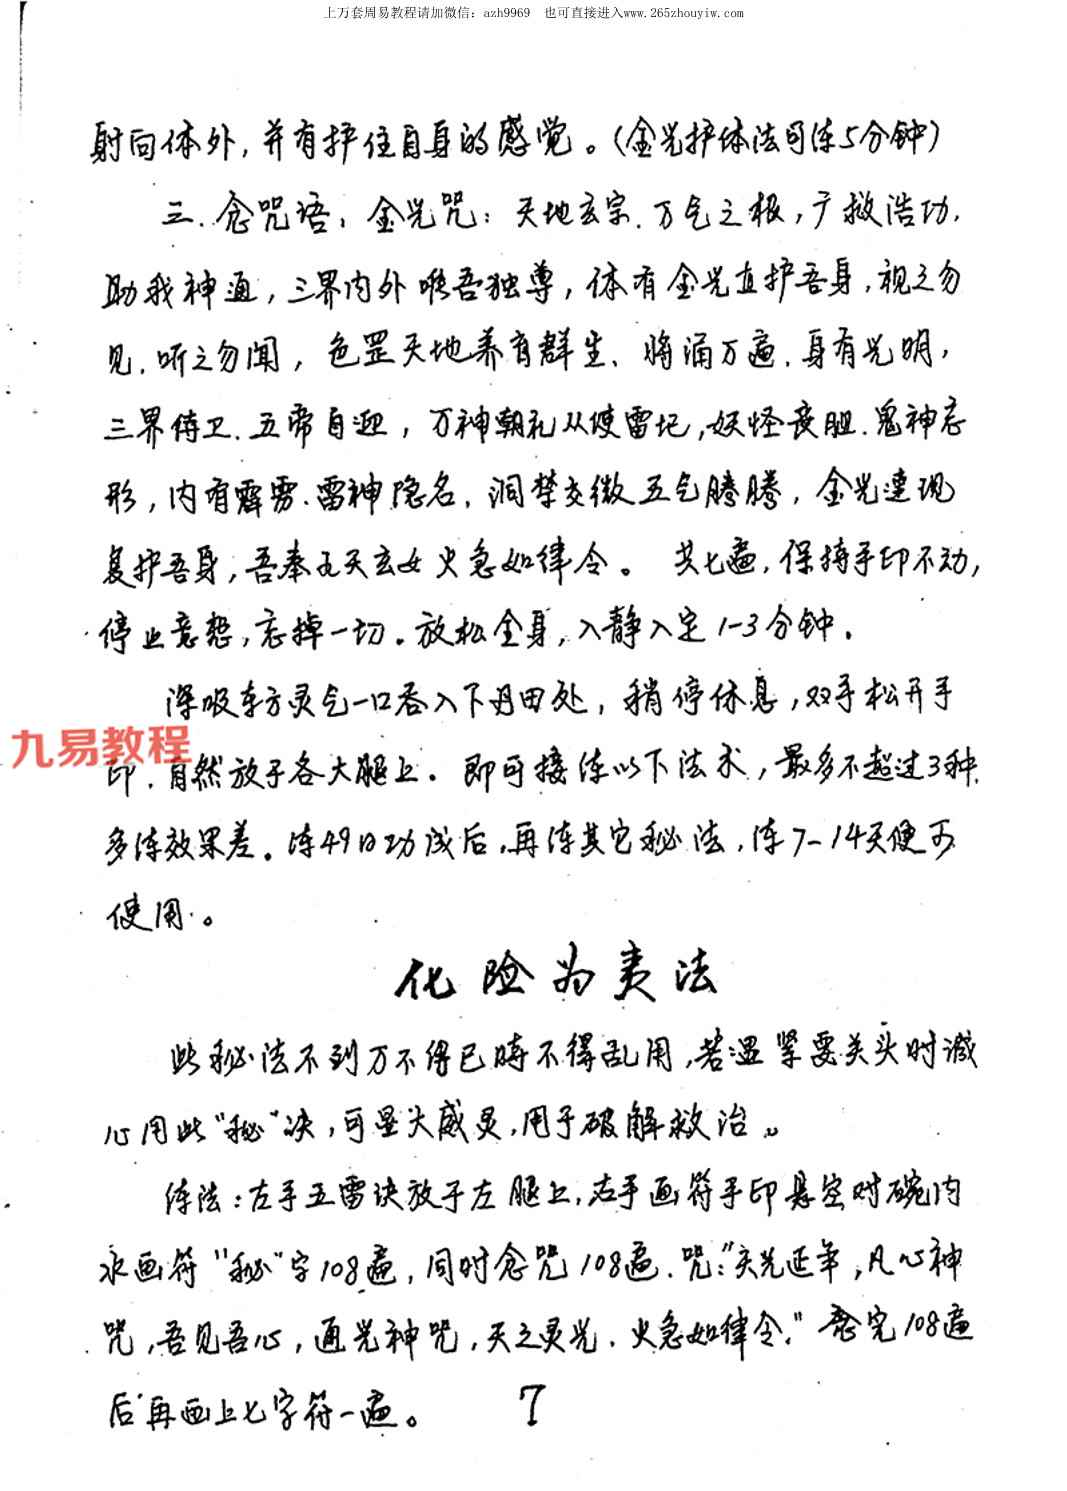 上万套周易教程请加微信：azh9969　也可直接进入www.265zhouyiw.com
射向体外，并有护住自身的感觉。（金光护体法可练5分钟）
三．念咒语：金光咒：天地玄宗．万气之根，广救浩功．
助我神通，三界内外唯吾独尊，体有金光直护吾身，视之勿
见．听之勿闻，色罡天地养育群生、将涌万遍．身有光明，
三界侍卫．五帝自迎，万神朝礼从使雷圮，妖怪丧胆．鬼神忘
形，内有霹雳．雷神隐名．洞禁交微五气腾腾，金光速现
复护吾身，吾奉九天玄女火急如律令。共七遍，保持手印不动，
停止意想，忘掉一切。放松全身，入静入定1-3分钟．
深吸东方灵气一口吞入下丹田处，稍停休息，双手松开手
九易教程
印．自然放于各大腿上．即可接练以下法术，最多不超过3种．
多练效果差。练49日功成后，再练其它秘法，练7-14天便可
使用。
化险为夷法
此秘法不到万不得已时不得乱用，若遇紧要关头时诚
心用此“秘”决，可显大威灵，用于破解救治。
练法：左手五雷诀放于左腿上，右手画符手印悬空对碗内
水画符“秘”字108遍，同时念咒108遍．咒：“天光延年，凡心神
咒，吾见吾心，通光神咒，天之灵光．火急如律令．”念完108遍
后再画上七字符一遍。
7